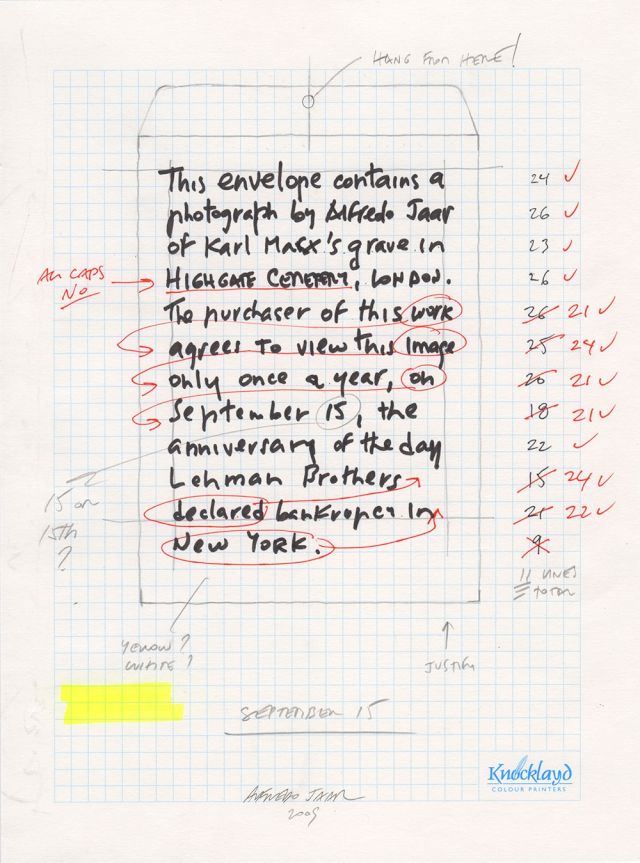 HANG FROM HERE!
This envelope contains a 24 ✓
photograph by Alfredo Jaar 26 ✓
of Karl Marx's grave in 23 ✓
ALL CAPS
NO
HIGHGATE CEMETERY, LONDON. 26 ✓
The purchaser of this work 26 21 ✓
agrees to view this image 25 24 ✓
only once a year, on 20 21 ✓
September 15, the 18 21 ✓
anniversary of the day 22 ✓
Lehman Brothers 15 24 ✓
15 or
15th
?
declared bankruptcy in 21 22 ✓
New York. 9
11 LINES
TOTAL
YELLOW?
WHITE?
JUSTIFY
SEPTEMBER 15
ALFREDO JAAR
2009
Knocklayd
COLOUR PRINTERS